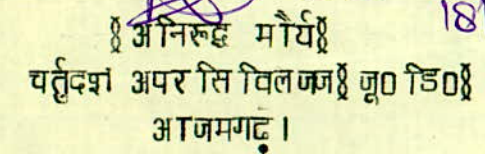 18
§अनिरूद्ध मौर्य§
चर्तुदशं अपर सिविलजज§ जू0 डि0§
आजमगढ़।